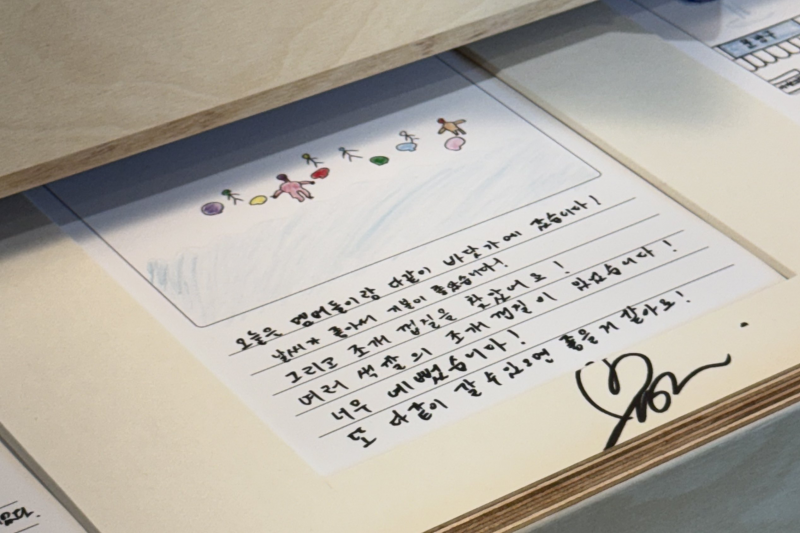 오늘은 멤버들이랑 다같이 바닷가에 갔습니다!
날씨가 좋아서 기분이 좋았습니다!
그리고 조개 껍질을 찾았어요!
여러 색깔의 조개 껍질이 있었습니다!
너무 예뻤습니다!
또 다같이 갈 수 있으면 좋을거 같아요!